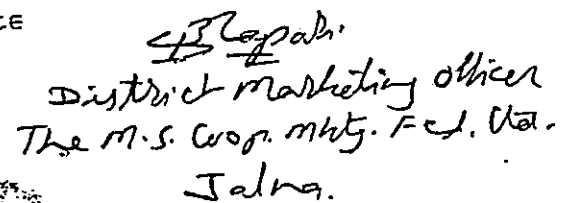 CE
District Marketing Officer
The M.S. Coop. Mktg. Fed. Ltd.
Jalna.